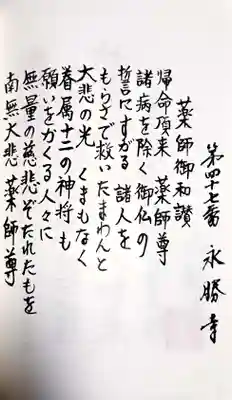 第四十七番 永勝寺
薬師御和讃
帰命頂来 薬師尊
諸病を除く御仏の
誓にすがる 諸人を
もらさで救いたまわんと
大悲の光 くまもなく
眷属十二の神将も
願いをかくる人々に
無量の慈悲ぞたれたもを
南無大悲 薬師尊